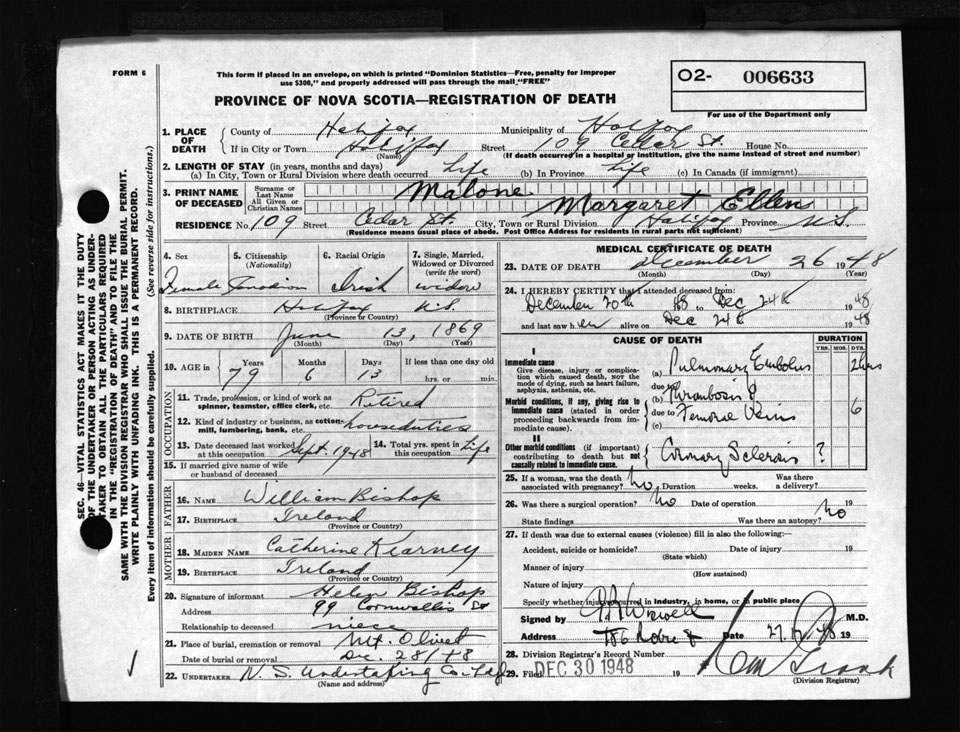 FORM 6
This form if placed in an envelope, on which is printed "Dominion Statistics—Free, penalty for improper
use $300," and properly addressed will pass through the mail "FREE"
O2- 006633
For use of the Department only
PROVINCE OF NOVA SCOTIA—REGISTRATION OF DEATH
SEC. 46—VITAL STATISTICS ACT MAKES IT THE DUTY
OF THE UNDERTAKER OR PERSON ACTING AS UNDER-
TAKER TO OBTAIN ALL THE PARTICULARS REQUIRED
IN THE "REGISTRATION OF DEATH" AND TO FILE THE
SAME WITH THE DIVISION REGISTRAR WHO SHALL ISSUE THE BURIAL PERMIT.
WRITE PLAINLY WITH UNFADING INK. THIS IS A PERMANENT RECORD.
Every item of information should be carefully supplied. (See reverse side for instructions.)
1. PLACE OF DEATH
County of Halifax Municipality of Halifax
If in City or Town Halifax Street 109 Cedar St. House No.
(Name) (If death occurred in a hospital or institution, give the name instead of street and number)
2. LENGTH OF STAY (in years, months and days)
(a) In City, Town or Rural Division where death occurred Life (b) In Province Life (c) In Canada (if immigrant)
3. PRINT NAME OF DECEASED
Surname or Last Name Malone
All Given or Christian Names Margaret Ellen
RESIDENCE No. 109 Street Cedar St. City, Town or Rural Division Halifax Province N.S.
(Residence means usual place of abode. Post Office Address for residents in rural parts not sufficient)
4. Sex Female
5. Citizenship (Nationality) Canadian
6. Racial Origin Irish
7. Single, Married, Widowed or Divorced (write the word) widow
8. BIRTHPLACE Halifax N.S.
(Province or Country)
9. DATE OF BIRTH June 13, 1869
(Month) (Day) (Year)
10. AGE in Years Months Days If less than one day old
79 6 13 hrs. or min.
OCCUPATION
11. Trade, profession, or kind of work as spinner, teamster, office clerk, etc. Retired
12. Kind of industry or business, as cotton-mill, lumbering, bank, etc. houseduties
13. Date deceased last worked at this occupation Sept. 1948
14. Total yrs. spent in this occupation Life
15. If married give name of wife or husband of deceased
FATHER
16. NAME William Bishop
17. BIRTHPLACE Ireland
(Province or Country)
MOTHER
18. MAIDEN NAME Catherine Kearney
19. BIRTHPLACE Ireland
(Province or Country)
20. Signature of informant Helen Bishop
Address 99 Cornwallis St
Relationship to deceased niece
21. Place of burial, cremation or removal Mt. Olivet
Date of burial or removal Dec. 28/48
22. UNDERTAKER N. S. Undertaking Co. Ltd
(Name and address)
MEDICAL CERTIFICATE OF DEATH
23. DATE OF DEATH December 26 1948
(Month) (Day) (Year)
24. I HEREBY CERTIFY that I attended deceased from:
December 20th 48 to Dec 24th 1948
and last saw her alive on Dec 24th 1948
CAUSE OF DEATH
DURATION
YRS. MOS. DYS.
I
Immediate cause
Give disease, injury or complication which caused death, NOT the mode of dying, such as heart failure, asphyxia, asthenia, etc.
(a) Pulmonary Embolus
due to
Morbid conditions, if any, giving rise to immediate cause (stated in order proceeding backwards from immediate cause).
(b) Thrombosis
due to Femoral Veins 6
(c)
II
Other morbid conditions (if important) contributing to death but not causally related to immediate cause.
Coronary Sclerosis ?
25. If a woman, was the death associated with pregnancy? No Duration weeks. Was there a delivery?
26. Was there a surgical operation? No Date of operation 19
State findings Was there an autopsy? No
27. If death was due to external causes (violence) fill in also the following:—
Accident, suicide or homicide? Date of injury 19
(State which)
Manner of injury
(How sustained)
Nature of injury
Specify whether injury occurred in industry, in home, or in public place
Signed by M.D.
Address 186 Robie St Date 27 48 19
28. Division Registrar's Record Number
29. Filed DEC 30 1948 19
(Division Registrar)